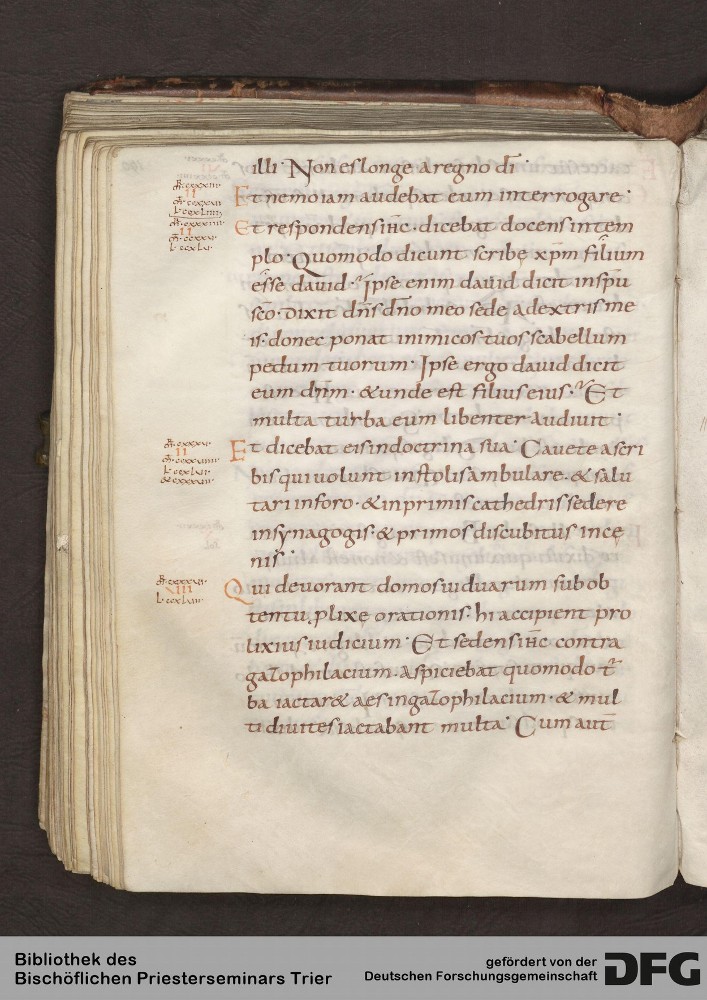 illi· Non es longe a regno dī·
Et nemo iam audebat eum interrogare·
Et respondens ihc̄· dicebat docens in tem
plo· Quomodo dicunt scribę xp̄m filium
esse dauid· Ipse enim dauid dicit in sp̄u
sc̄o· dixit dn̄s dn̄o meo sede a dextris me
is· donec ponat inimicos tuos scabellum
pedum tuorum· Ipse ergo dauid dicit
eum dn̄m· & unde est filius eius· Et
multa turba eum libenter audiuit·
Et dicebat eis in doctrina sua· Cauete a scri
bis qui uolunt in stolis ambulare· & salu
tari in foro· & in primis cathedris sedere
in synagogis· & primos discubitus in cę
nis·
Qui deuorant domos uiduarum sub ob
tentu ꝓlixę orationis· hi accipient pro
lixius iudicium· Et sedens ihc̄ contra
gazophilacium· aspiciebat quomodo t̄
ba iactar& aes in gazophilacium· & mul
ti diuites iactabant multa· Cum aut̄
Bibliothek des
Bischöflichen Priesterseminars Trier
gefördert von der
Deutschen Forschungsgemeinschaft
DFG